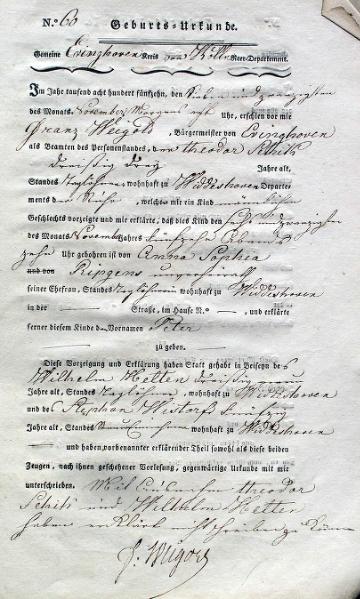 N.º 60 Geburts-Urkunde.
Gemeine Evinghoven Kreis von Kölln Roer-Departement.
Im Jahr tausend acht hundert fünfzehn, den
des Monats November Morgens elf Uhr, erschien vor mir
Franz Weigold, Bürgermeister von Evinghoven
als Beamten des Personenstandes, der theodor Schik
dreißig drey Jahre alt,
Standes Taglöhner wohnhaft zu Widdeshoven Departe-
ments der Ruhr, welcher mir ein Kind männlichen
Geschlechts vorzeigte und mir erklärte, daß dies Kind den
des Monats November Jahres fünfzehn Abends
zehn Uhr gebohren ist von Anna Sophia
und von Ripgens
seiner Ehefrau, Standes Taglöhnerin wohnhaft zu Widdeshoven
in der — Straße, im Hause N.º — , und erklärte
ferner diesem Kinde den Vornamen Peter
zu geben.
Diese Vorzeigung und Erklärung haben Statt gehabt in Beiseyn des
Wilhelm Hetten dreißig
Jahre alt, Standes Taglöhner, wohnhaft zu Widdeshoven
und des Stephan
Jahre alt, Standes wohnhaft zu Widdeshoven
— und haben, vorbenannter erklärender Theil sowohl als diese beiden
Zeugen, nach ihnen geschehener Vorlesung, gegenwärtige Urkunde mit mir
unterschrieben. Mit Ausnahm theodor
Schik und Wilhelm Hetten
haben erklärt nicht schreiben zu können